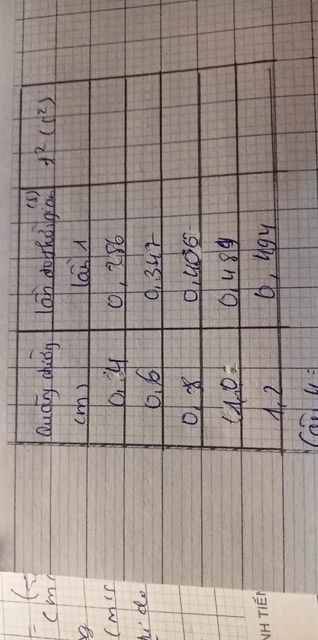 Quãng đường (m) lần đo thời gian (s) lần 1 t² (s²)
0,4 0,286
0,6 0,347
0,8 0,405
1,0 0,489
1,2 0,494
Câu 4:
(m/s
NH TIẾN